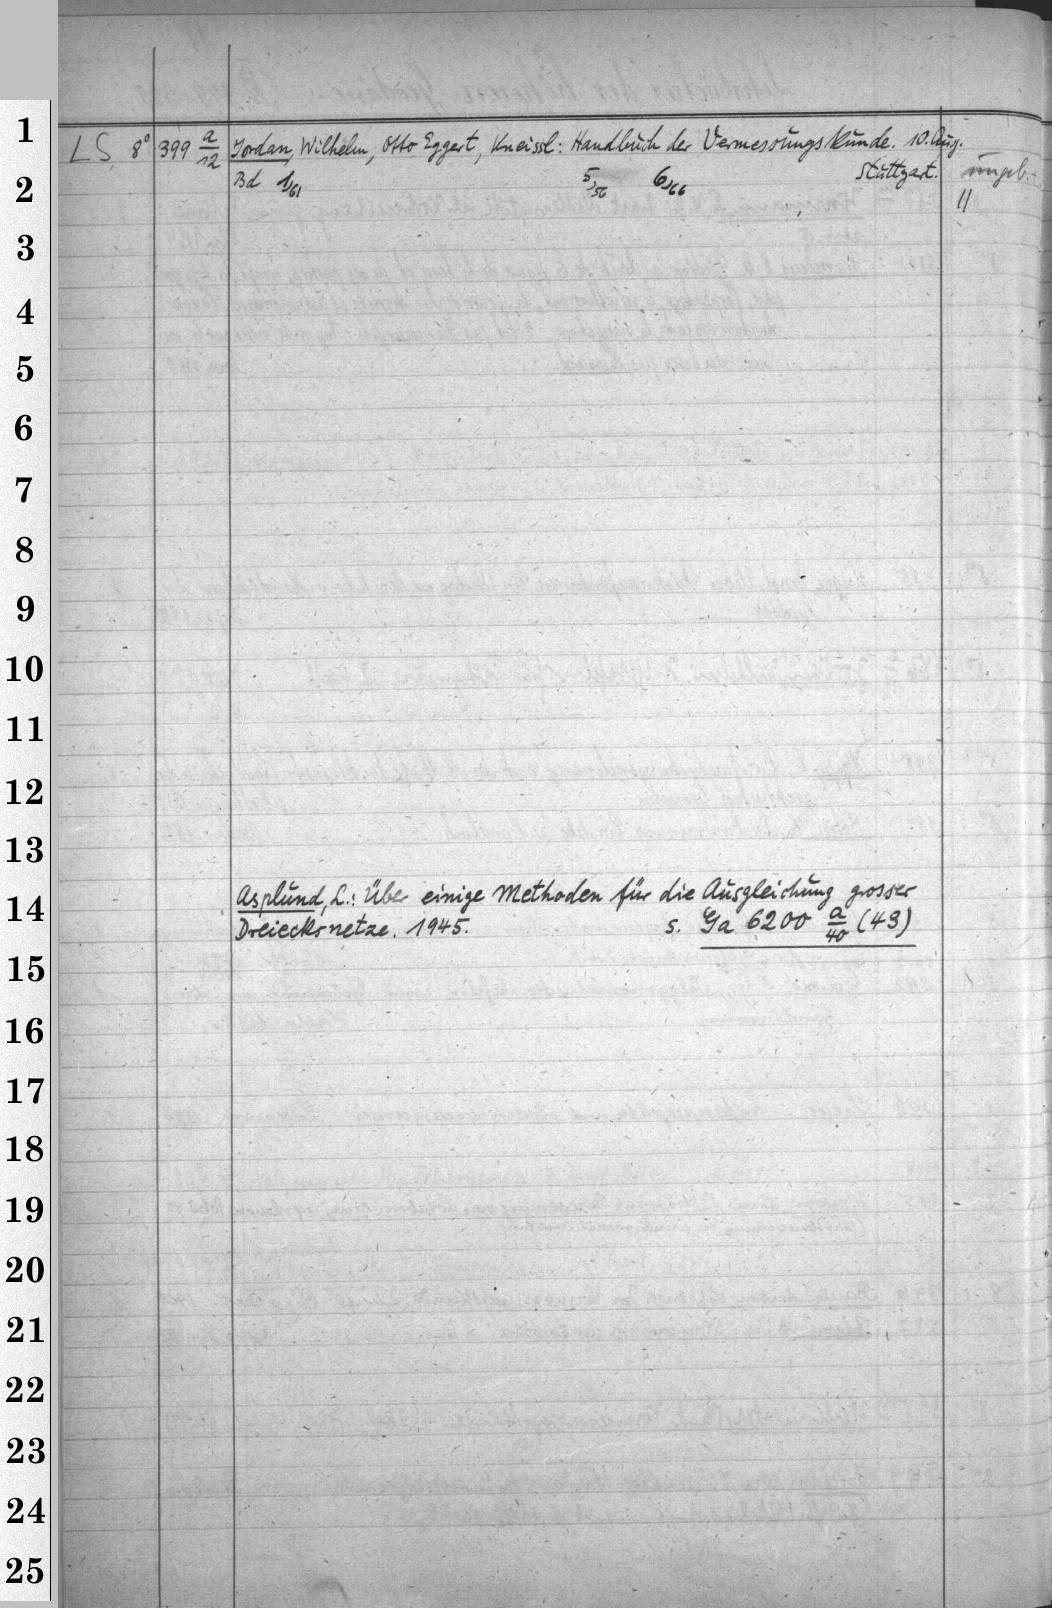 1
LS, 8° 399 a/12 Jordan, Wilhelm, Otto Eggert, Kneissl: Handbuch der Vermessungskunde. 10. Aufl.
2
Bd 1/61 5/56 6/66 Stuttgart. ungeb.
11
3
4
5
6
7
8
9
10
11
12
13
Asplund, L.: Über einige Methoden für die Ausgleichung grosser
14
Dreiecksnetze. 1945. s. Ga 6200 a/40 (43)
15
16
17
18
19
20
21
22
23
24
25